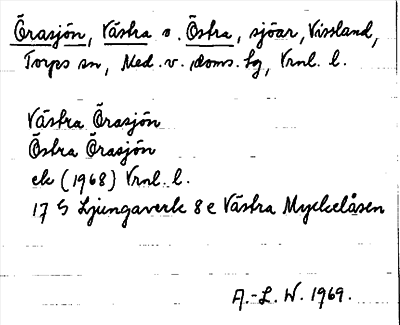 Örasjön, Västra o. Östra, sjöar, Vissland,
Torps sn, Med. v. doms. tg, Vrnl. l.
Västra Örasjön
Östra Örasjön
ek (1968) Vrnl. l.
17 G Ljungaverk 8 e Västra Myckelåsen
A.-L. W. 1969.